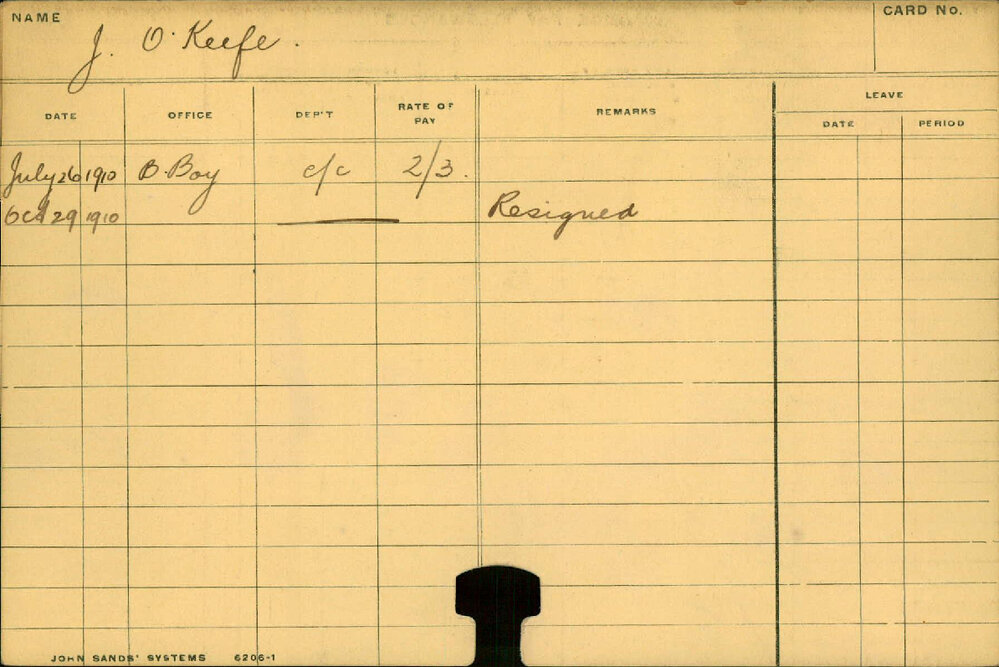 NAME
CARD No.
J. O'Keefe.
DATE OFFICE DEP'T RATE OF PAY REMARKS LEAVE
DATE PERIOD
July 26 1910 B. Boy c/c 2/3.
Oct 29 1910 Resigned
JOHN SANDS' SYSTEMS 6206-1